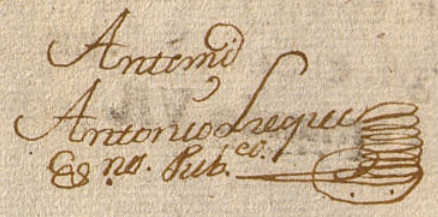 Antemi
Antonio Lreque
Es.no. Pub.co.